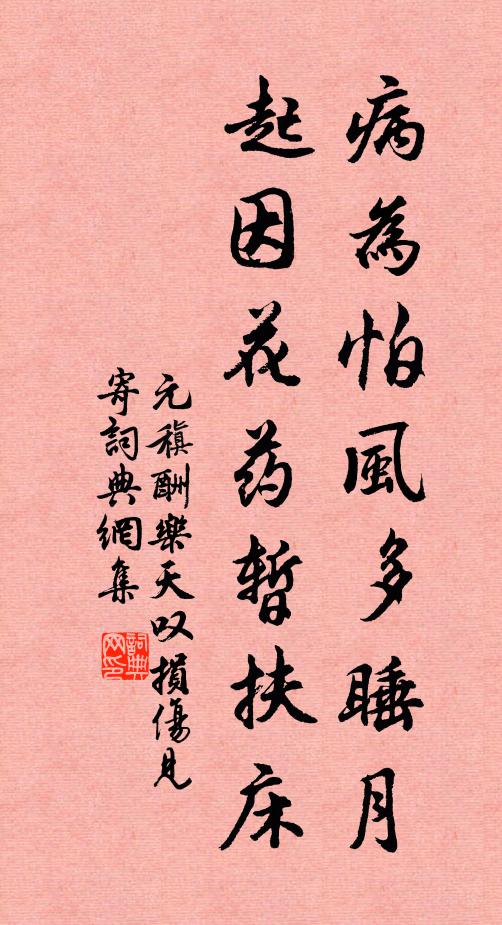 病為怕風多睡月
起因花药暫扶床
元稹酬樂天叹損傷見
寄詞典網集
詞典
网印